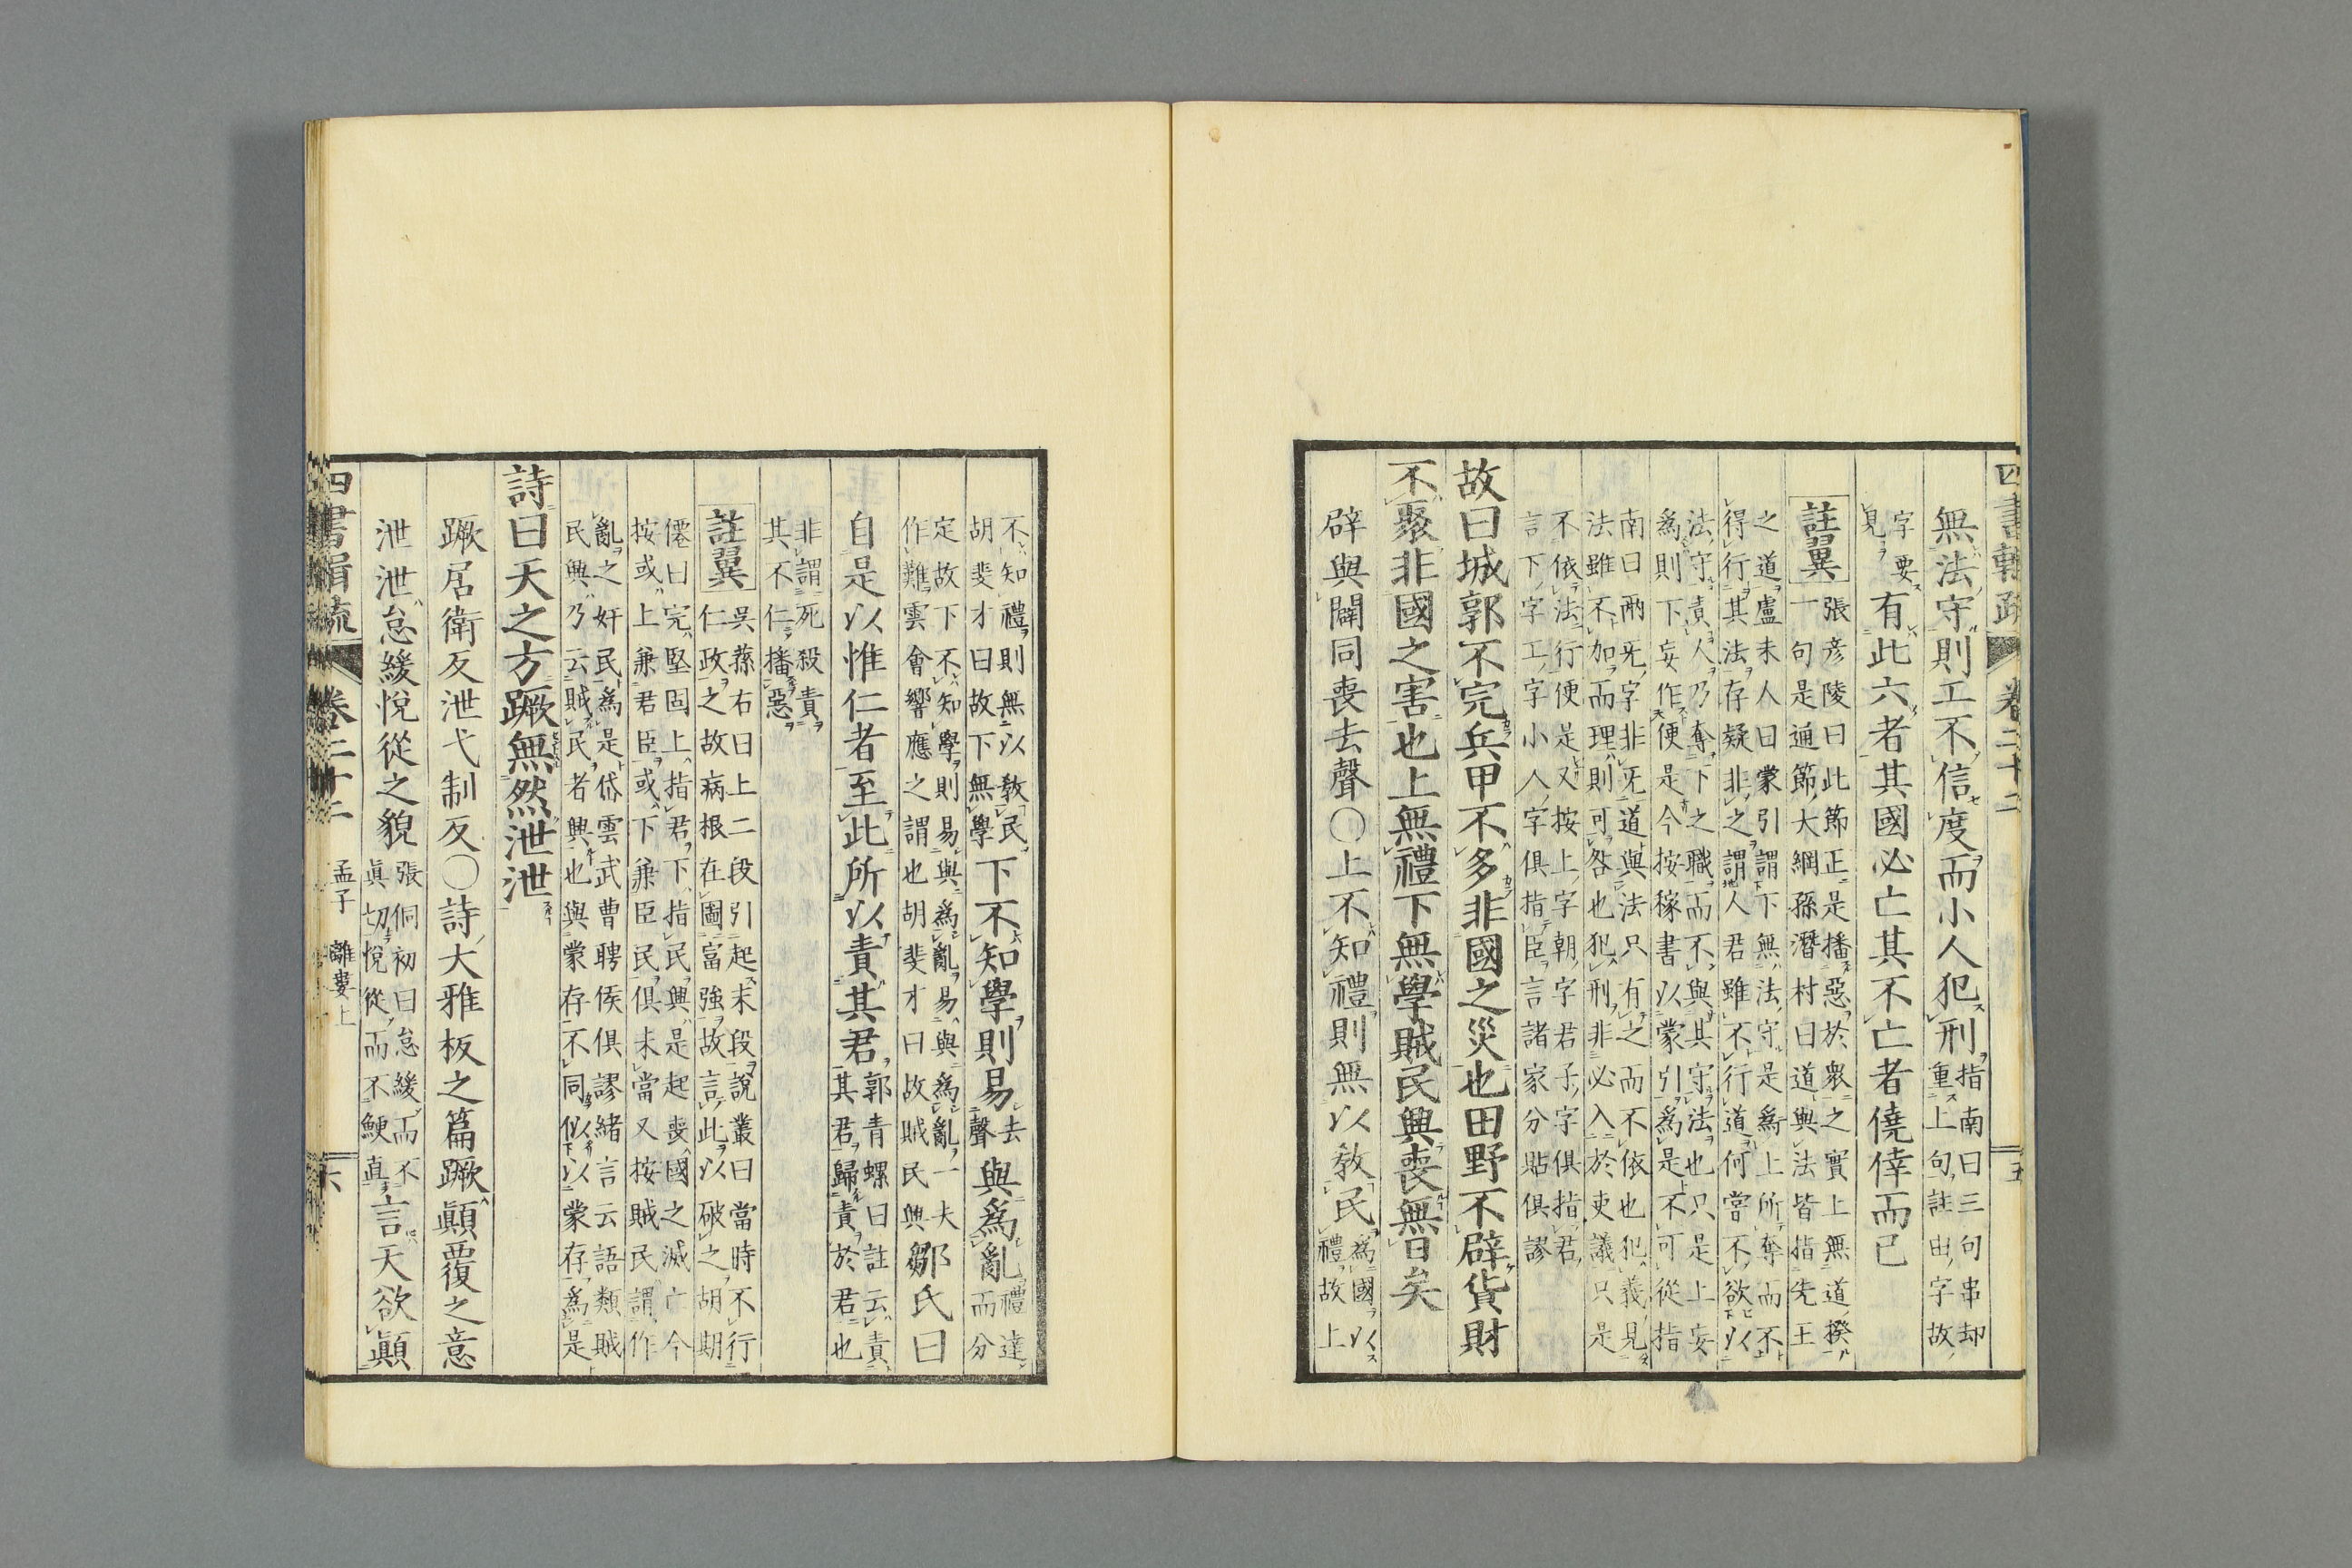 四書輯疏 卷二十二 五
無法守則工不信度而小人犯刑指南曰三句串却
重上句註由字故
字要有此六者其國必亡其不亡者僥倖而已
見
註翼張彦陵曰此節正是播惡於衆之實上無道揆
一句是通節大綱孫潛村曰道與法皆指先王
之道盧未人曰蒙引謂下無法守是爲上所奪而不
得行其法存疑非之謂人君雖不行道何嘗不欲以
法守責人乃奪下之職而不與其守法也只是上妄
爲則下妄作便是今按稼書以蒙引爲是不可從指
南曰兩旡字非旡道與法只有之而不依也犯義見
法雖不加而理則可咎也犯刑非必入於吏議只是
不依法行便是又按上字朝字君子字俱指君
言下字工字小人字俱指臣言諸家分貼俱謬
故曰城郭不完兵甲不多非國之災也田野不辟貨財
不聚非國之害也上無禮下無學賊民興喪無日矣
辟與闢同喪去聲〇上不知禮則無以教民爲國以
禮故上
不知禮則無以教民下不知學則易去與爲亂禮達
胡斐才曰故下無學聲而分
定故下不知學則易與爲亂易與爲亂一夫鄒氏曰
作難雲會響應之謂也胡斐才曰故賊民興
自是以惟仁者至此所以責其君郭青螺曰註云責
其君歸責於君也
非謂死殺責
其不仁播惡
註翼吳蓀右曰上二段引起末段說叢曰當時不行
仁政之故病根在圖富強故言此以破之胡期
僊曰完堅固上指君下指民興是起喪國之滅亡今
按或上兼君臣或下兼臣民俱未當又按賊民謂作
亂之奸民爲是岱雲武曹聘侯俱謬緒言云語類賊
民興乃云賊民者興也與蒙存不同似以蒙存爲是
詩曰天之方蹶無然泄泄
蹶居衛反泄弋制反〇詩大雅板之篇蹶顚覆之意
泄泄怠緩悅從之貌張侗初曰怠緩而不言天欲顚
眞切悅從而不鯁直
四書輯疏 卷二十二 孟子 離婁上 六